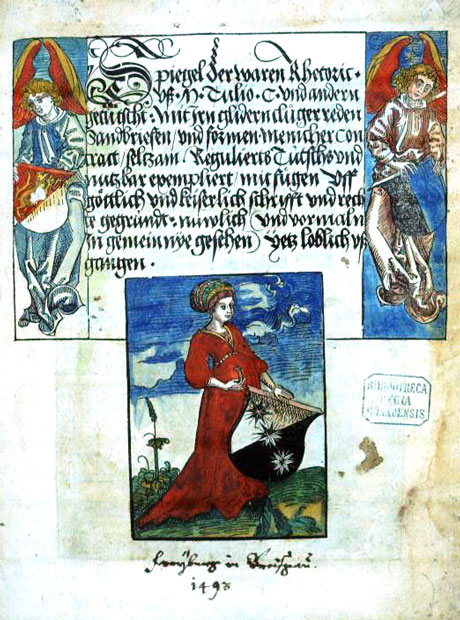 Spiegel der waren Rhetoric ·
vß · M · Tulio · C · vnd andern
getütscht · Mit jrn glidern clüger reden
Sandbriefen / vnd formen · menicher con
tract / seltzam / Regulierts Tütschs vnd
nutzbar exempliert / mit fügen vff
göttlich vnd keiserlich schrifft vnd rech
te gegründt · nuwlich (vnd vormaln
jn gemein nye gesehen) yetz loblich vß
gangen ·
BIBLIOTHECA
REGIA
MONACENSIS
Freyburg in Breisgau.
1493